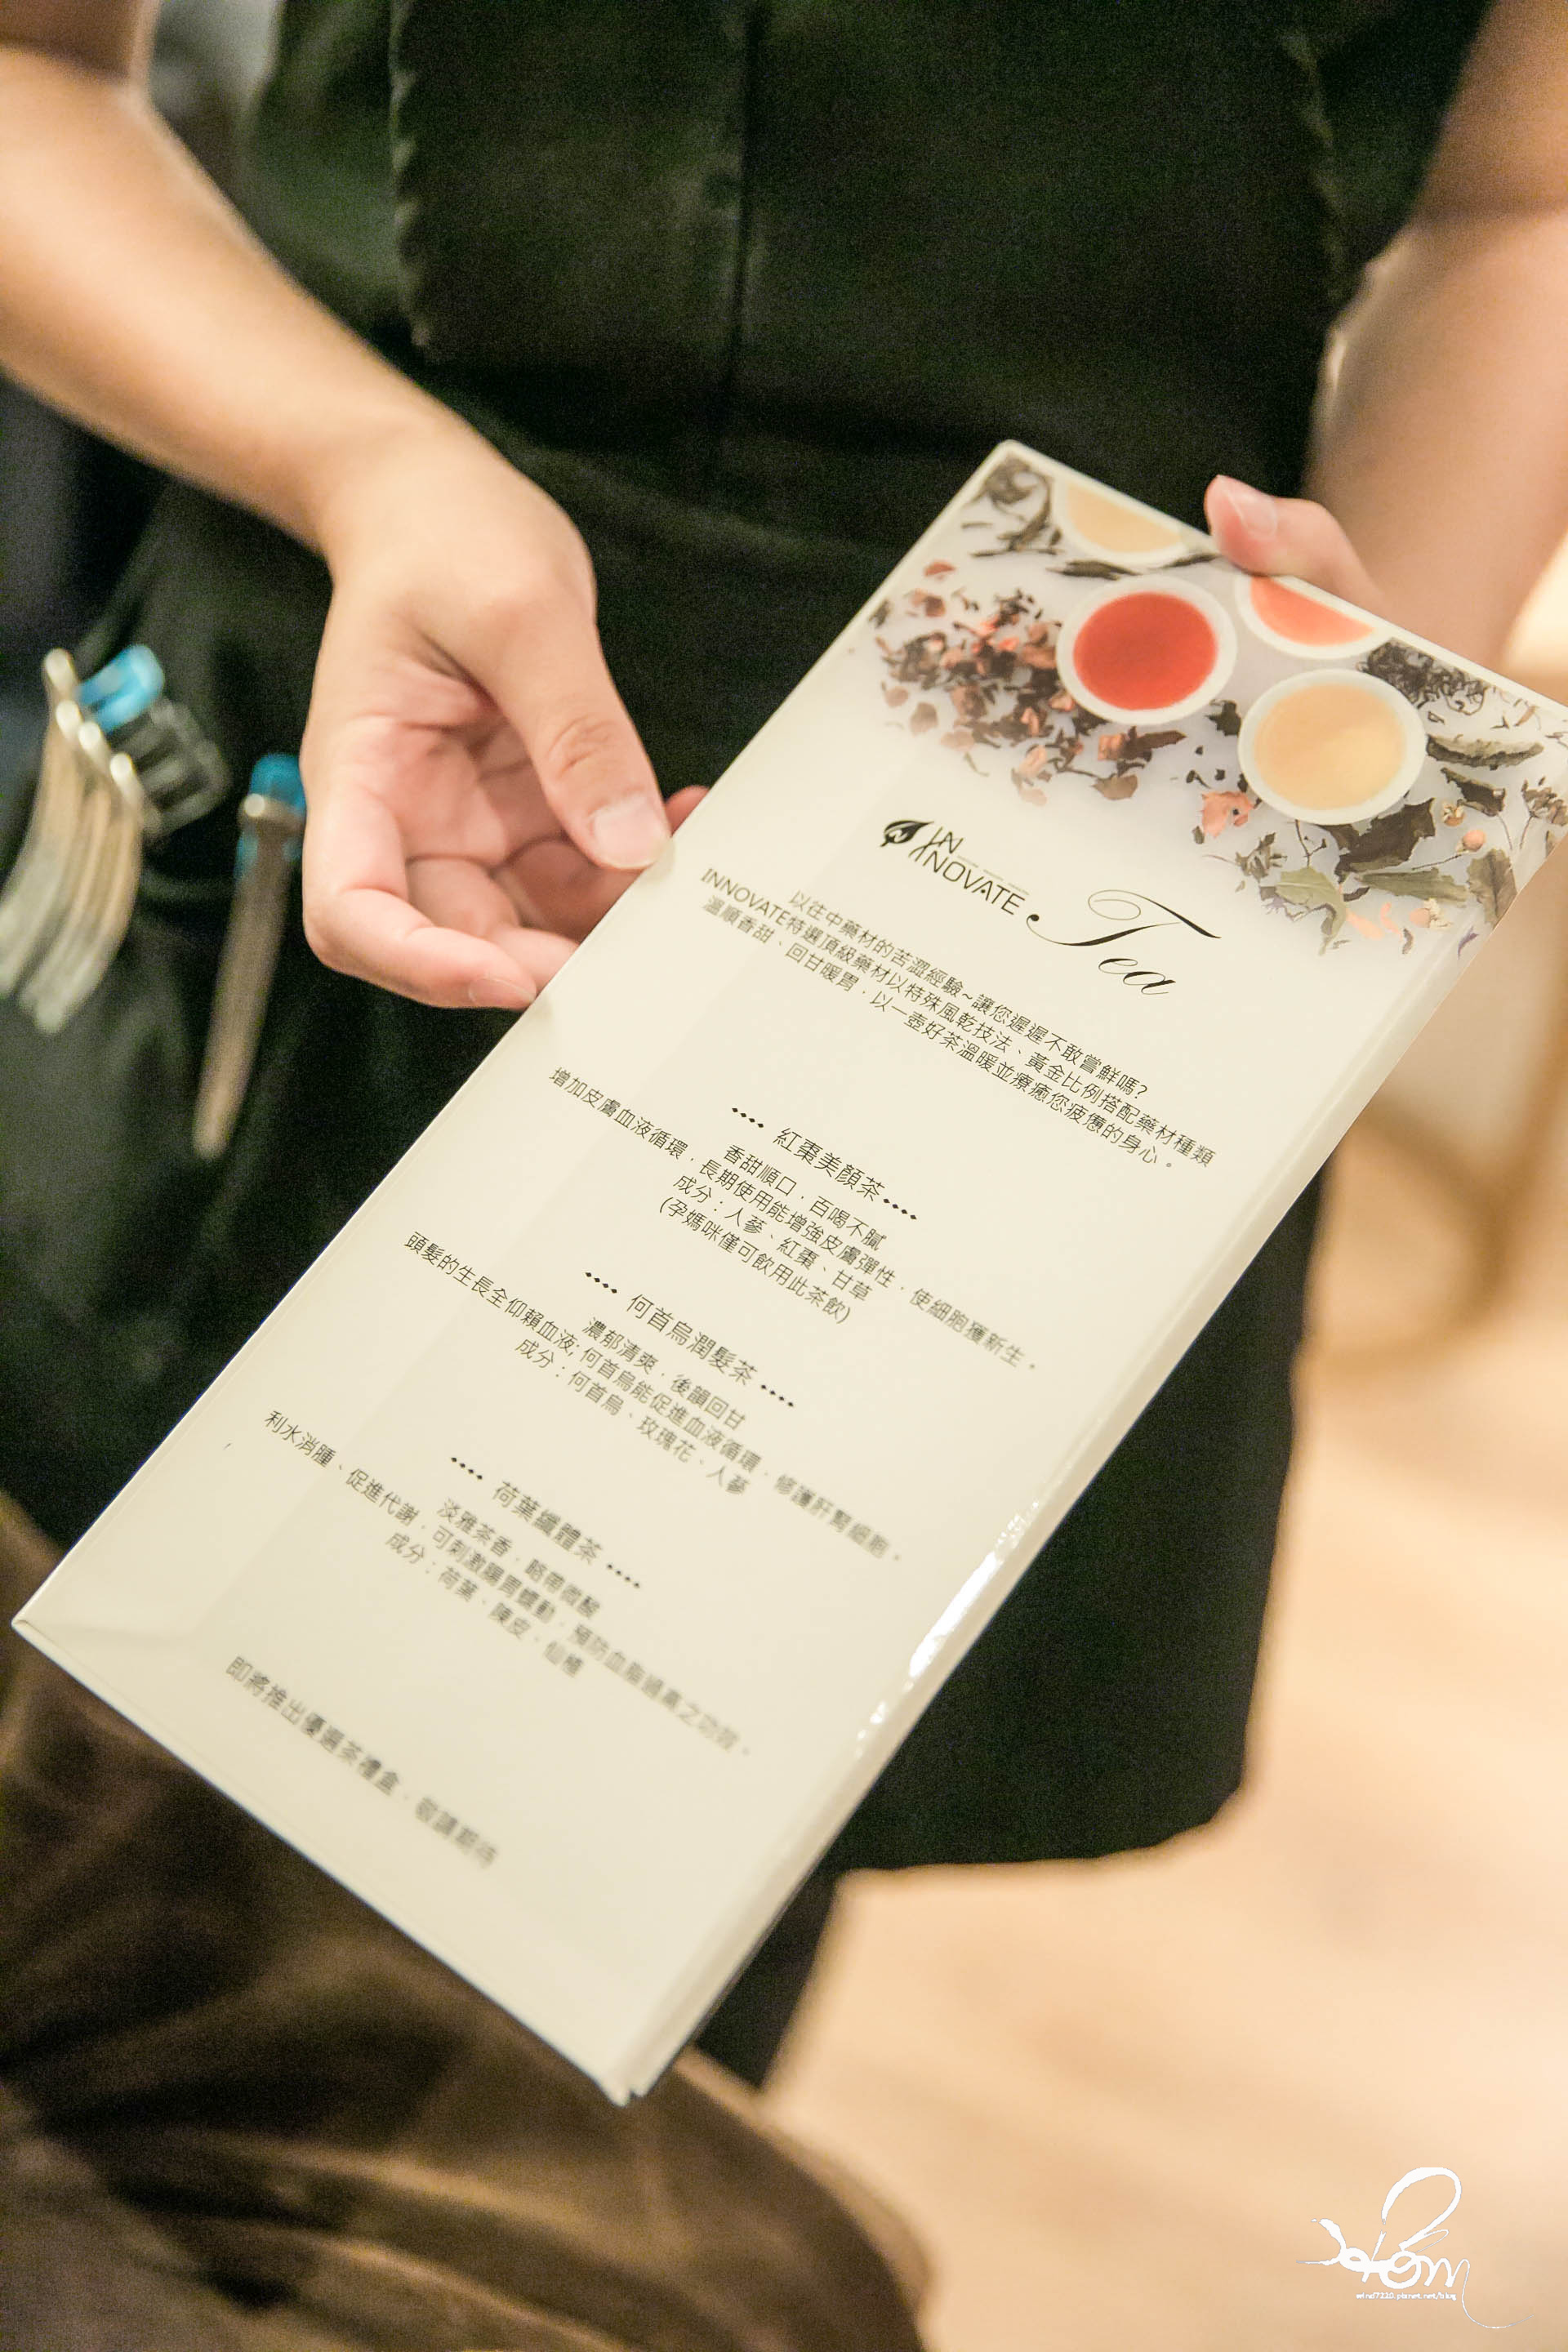 IN
INNOVATE
Tea
以往中藥材的苦澀經驗~讓您遲遲不敢嘗鮮嗎?
INNOVATE特選頂級藥材以特殊風乾技法、黃金比例搭配藥材種類
溫順香甜、回甘暖胃，以一壺好茶溫暖並療癒您疲憊的身心。
紅棗美顏茶
香甜順口，百喝不膩
增加皮膚血液循環，長期使用能增強皮膚彈性，使細胞獲新生。
成分：人蔘、紅棗、甘草
(孕媽咪僅可飲用此茶飲)
何首烏潤髮茶
濃郁清爽，後韻回甘
頭髮的生長全仰賴血液;何首烏能促進血液循環，修護肝腎細胞。
成分：何首烏、玫瑰花、人蔘
荷葉纖體茶
淡雅茶香，略帶微酸
利水消腫、促進代謝，可刺激腸胃蠕動，預防血脂過高之功效。
成分：荷葉、陳皮、仙楂
即將推出優選茶禮盒，敬請期待